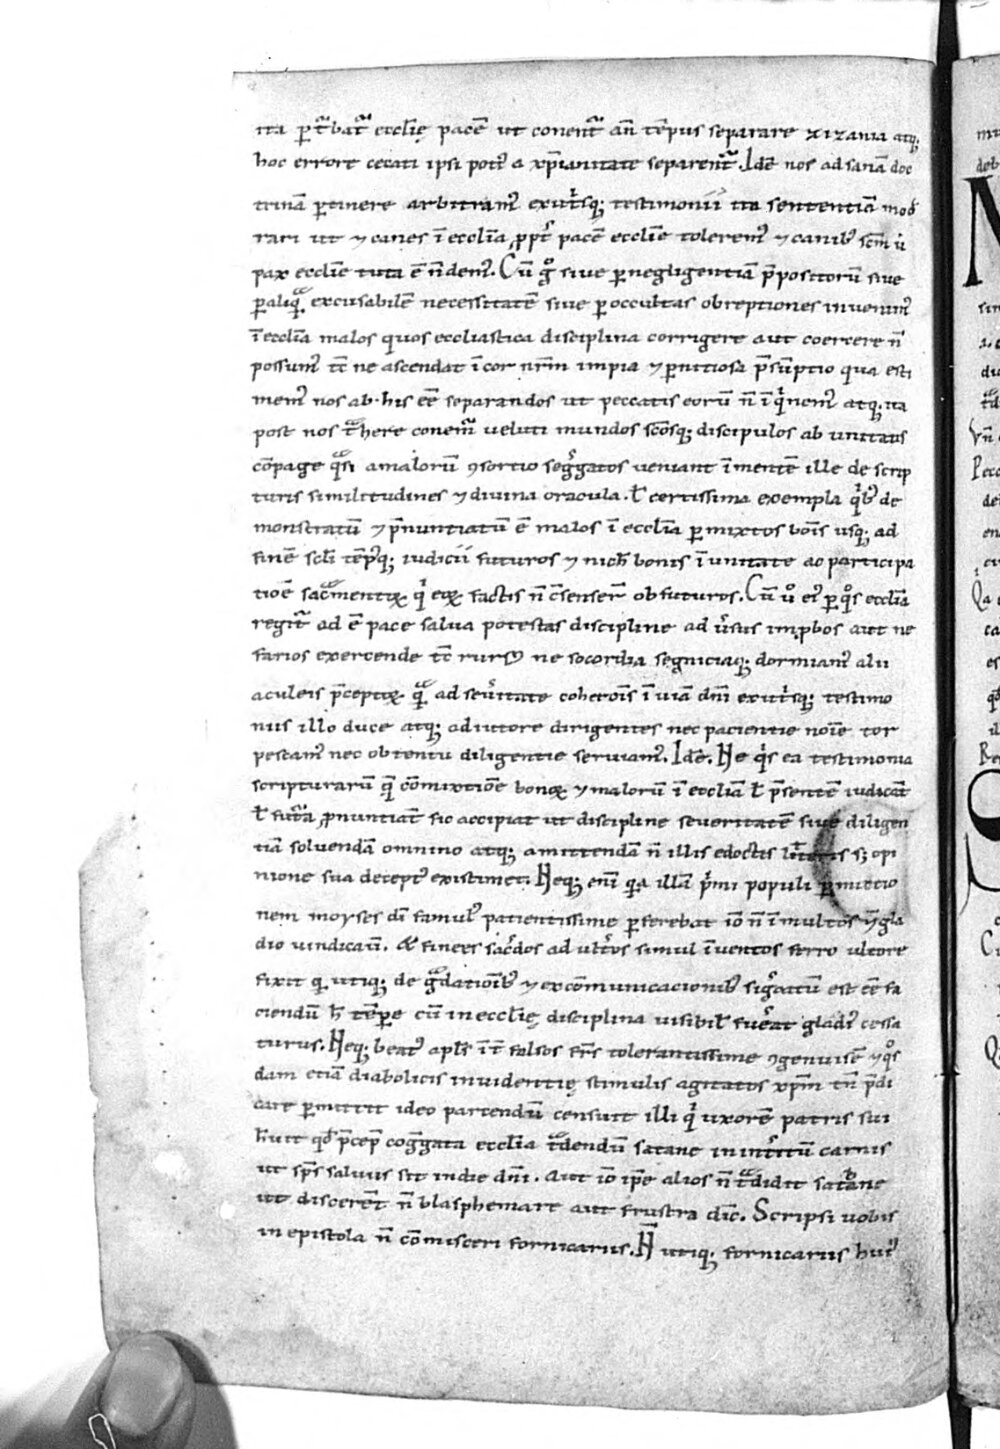 ita ꝑt̃bat᷑ ecclię pacẽ ut conent᷑ añ tẽpus separare zizania atq;
hoc errore cecati ipsi poti᷒ a xp̃ianitate separent᷑. Idẽ nos ad sanã doc
trinã ꝑtinere arbitram᷒ ex ut̾sq; testimonii ita sententiã mod̃
rari ut ⁊ canes ĩ ecclia ꝓpt̾ pacẽ ecclie tolerem᷒ ⁊ canib᷒ scm̃ ů
pax ecclie tuta ẽ ñ dem᷒. Cũ gͦ siue ꝑ negligentiã p̃positorũ siue
ꝑ aliqͣ excusabilẽ necessitatẽ siue ꝑ occultas obreptiones inuenim᷒
ĩ ecclia malos quos eccliastica disciplina corrigere aut coercere ñ
possum᷒ tc̃ ne ascendat ĩ cor nr̃m impia ⁊ ꝑnitiosa p̃sũptio qua esti
mem᷒ nos ab his eẽ separandos ut peccatis eorũ ñ ĩqͥnem᷒ atq; ita
post nos tͣhere conem᷑ ueluti mundos scõsq; discipulos ab unitatis
cõpage qͣsi a malorũ ꝯsortio seg̾gatos ueniant ĩ mentẽ ille de scrip
turis similitudines ⁊ diuina oracula ł certissima exempla qͥb᷒ de
monstratũ ⁊ p̃nuntiatũ ẽ malos ĩ ecclia ꝑmixtos bõis usq; ad
finẽ scłi tẽp᷒q; iudicii futuros ⁊ nich̃ bonis ĩ unitate ac participa
tiõe sacͣmentoꝝ qͥ eoꝝ factis ñ c̃senser̃ obfuturos. Cũ ů ei᷒ ꝑ qͦs ecclia
regit᷑ ad ẽ pace salua potestas discipline aduersus imp̃bos aut ne
farios exercende tc̃ rurs᷒ ne socordia segniciaq; dormiam᷒ alii
aculeis p̃ceptoꝝ qͣ ad seu̾itate cohercõis ĩ uiã dñi ex ut̾sq; testimo
niis illo duce atq; adiutore dirigentes nec pacientie nõie tor
pescam᷒ nec obtentu diligentie seruiam᷒. Idẽ. Ne qͥs ea testimonia
scripturarũ q̃ cõmixtiõe bonoꝝ ⁊ malorũ ĩ ecclia ł p̃sentẽ iudicãt
ł fut̾ã ꝓnuntiãt sic accipiat ut discipline seueritatẽ siue diligen
tiã soluendã omnino atq; amittendã ñ illis edoctis litt̾is s; opi
nione sua decept᷒ existimet. Neq; eni᷒ qͥa illã p̾mi populi ꝑmixtio
nem moyses dĩ famul᷒ patientissime ꝑferebat iõ ñ ĩ multos ⁊ gla
dio uindicauit. & finees sac̾dos adult̾os simul ĩuentos ferro ultore
fixit qͥ utiq; de gͣdatiõib᷒ ⁊ excõmunicacionib᷒ sig̃catũ est eẽ fa
ciendũ h̃ tẽpe cũ in ecclię disciplina uisibil̃ fu̾at gladi᷒ cessa
turus. Neq; beat᷒ apl̃s ĩt̾ falsos fr̃s tolerantissime ꝯgemuisẽ ⁊ qͦs
dam etiã diabolicis inuidentię stimulis agitatos xp̃m tñ p̃di
care ꝑmittit ideo parcendũ censuit illi qͥ uxorẽ patris sui
h̃uit qͦd p̃cep̃ cong̾gata ecclia tͣdendũ satane in int̾itũ carnis
ut sp̃s saluus sit in die dñi. aut iõ ip̃e alios ñ tͣdidit satͣane
ut discerẽt ñ blasphemare aut frustra dic̃. Scripsi uobis
in epistola ñ cõmisceri fornicariis. Ñ utiq; fornicariis hui᷒